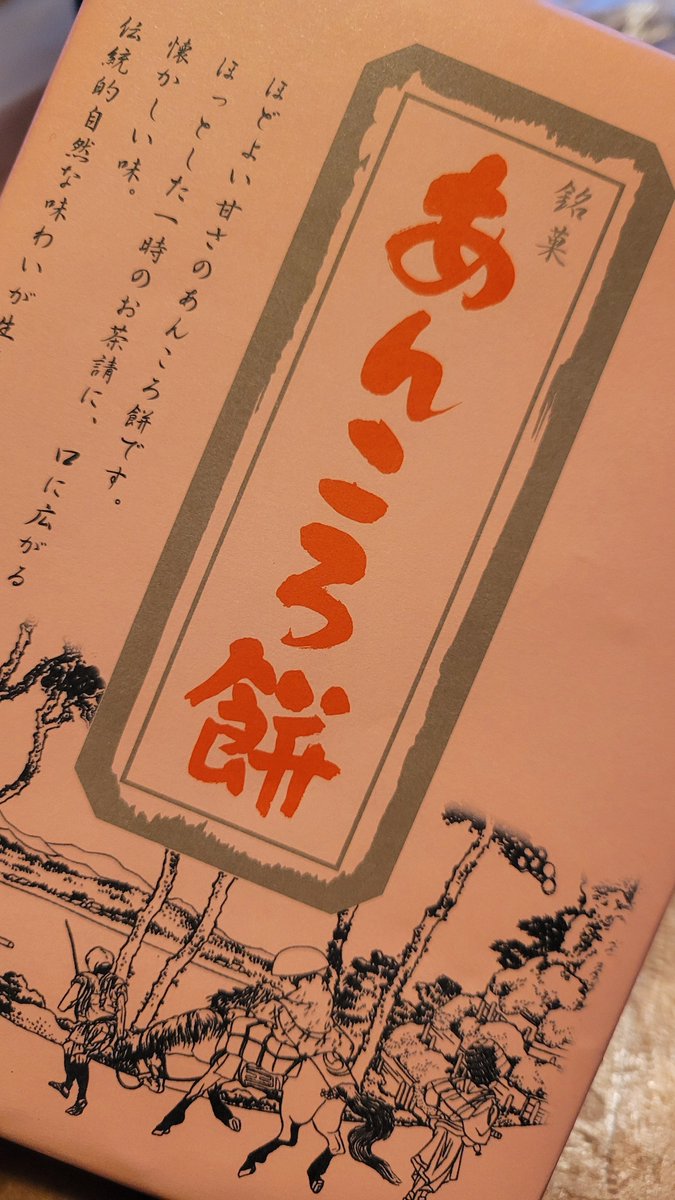 銘菓
あんころ餅
ほどよい甘さのあんころ餅です。
ほっとした一時のお茶請に、
懐かしい味。口に広がる
伝統的自然な味わいが生